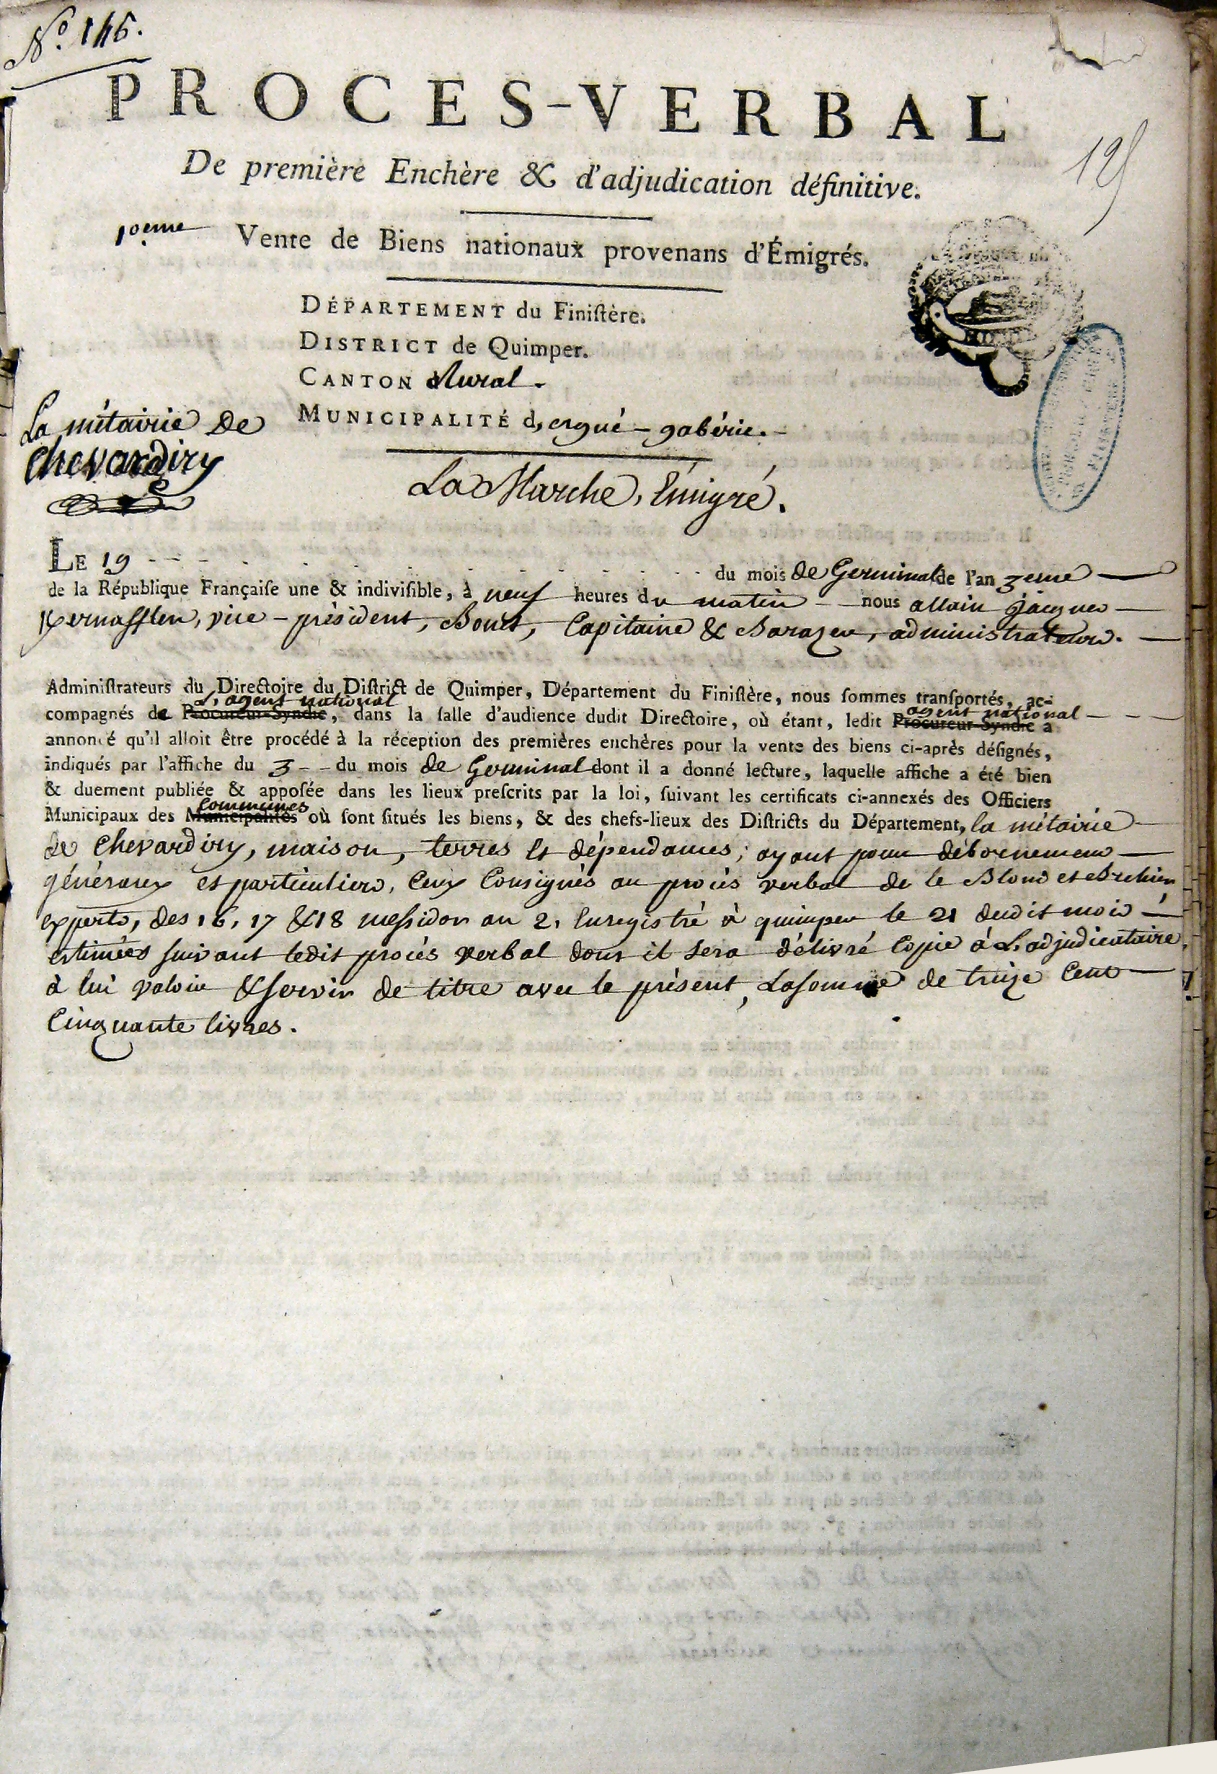 N.º 146.
PROCES-VERBAL
125
De première Enchère & d'adjudication définitive.
10eme Vente de Biens nationaux provenans d'Émigrés.
DÉPARTEMENT du Finiſtère.
DISTRICT de Quimper.
CANTON Rural.
MUNICIPALITÉ d'ergué-gabéric.
La métairie de
Chevardiry
La Marche, Émigré.
LE 19 du mois de Germinal de l'an 3eme
de la République Françaiſe une & indiviſible, à neuf heures du matin nous allain jacques
Kernafflen, vice-président, Bouët, Capitaine & Barazer, administrateurs.
Adminiſtrateurs du Directoire du Diſtrict de Quimper, Département du Finiſtère, nous ſommes tranſportés, ac-
L'agent national agent national
compagnés de Procureur-Syndic, dans la ſalle d'audience dudit Directoire, où étant, ledit Procureur-Syndic a
annoncé qu'il alloit être procédé à la réception des premières enchères pour la vente des biens ci-après déſignés,
indiqués par l'affiche du 3 du mois de Germinal dont il a donné lecture, laquelle affiche a été bien
& duement publiée & appoſée dans les lieux preſcrits par la loi, ſuivant les certificats ci-annexés des Officiers
communes
Municipaux des Municipalités où ſont ſitués les biens, & des chefs-lieux des Diſtricts du Département, la métairie
de Chevardiry, maison, terres et dépendances; ayant pour débornemens
généraux et particuliers, ceux consignés au procès verbal de le Blond et
experts, des 16, 17 & 18 messidor an 2, enregistré à quimper le 21 dudit mois
estimées suivant ledit procès verbal dont il sera délivré copie à L'adjudicataire,
à lui valoir & servir de titre avec le présent, La somme de treize cent
cinquante livres.